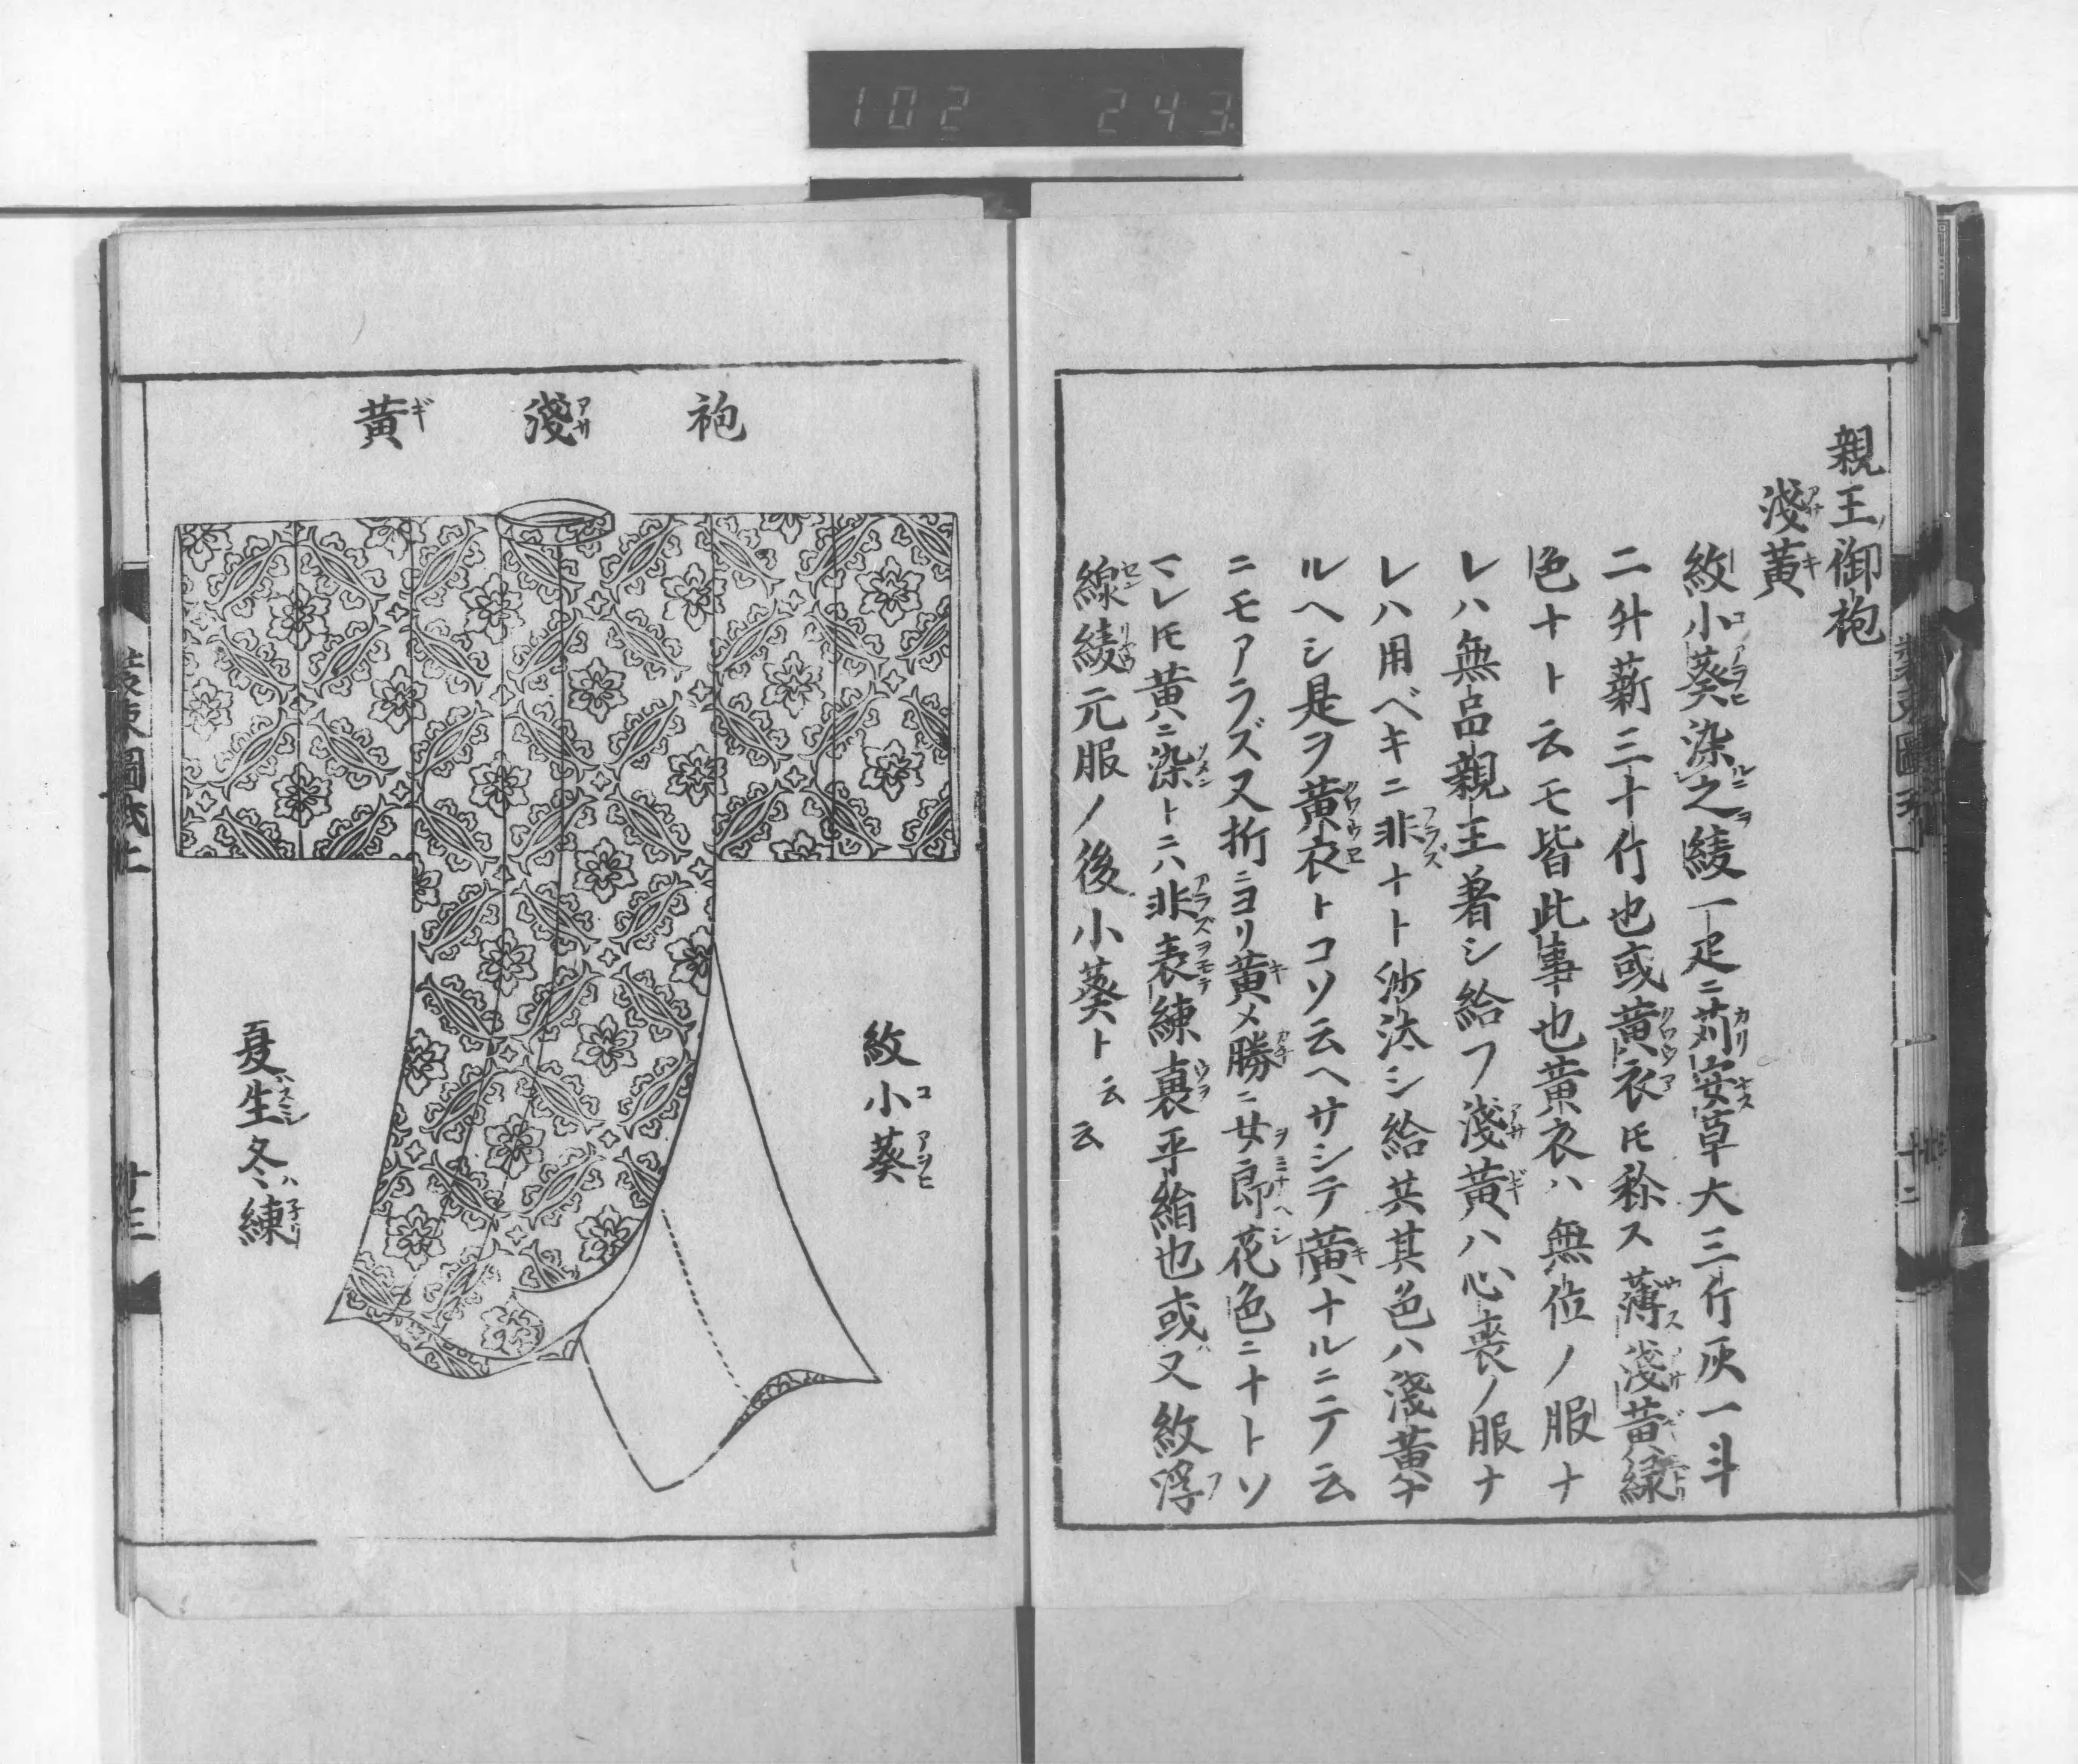 102 243
親王ノ御袍
淺黄
紋小葵染之綾一疋ニ苅安草大三斤灰一斗
二升薪三十斤也或黄衣トモ称ス薄淺黄緑
色ナト云モ皆此事也黄衣ハ無位ノ服ナ
レハ無品親王着シ給フ淺黄ハ心喪ノ服ナ
レハ用ベキニ非ナト沙汰シ給共其色ハ淺黄ナ
ルヘシ是ヲ黄衣トコソ云ヘサシテ黄ナルニテ云
ニモアラズ又折ニヨリ黄メ勝ニ女郎花色ニナトソ
マレ𪜈黄ニ染トニハ非表練裏平絹也或ハ又紋浮
線綾元服ノ後小葵ト云云
袍淺黄
紋小葵
夏ハ生冬ハ練
装束圖式上
廿三